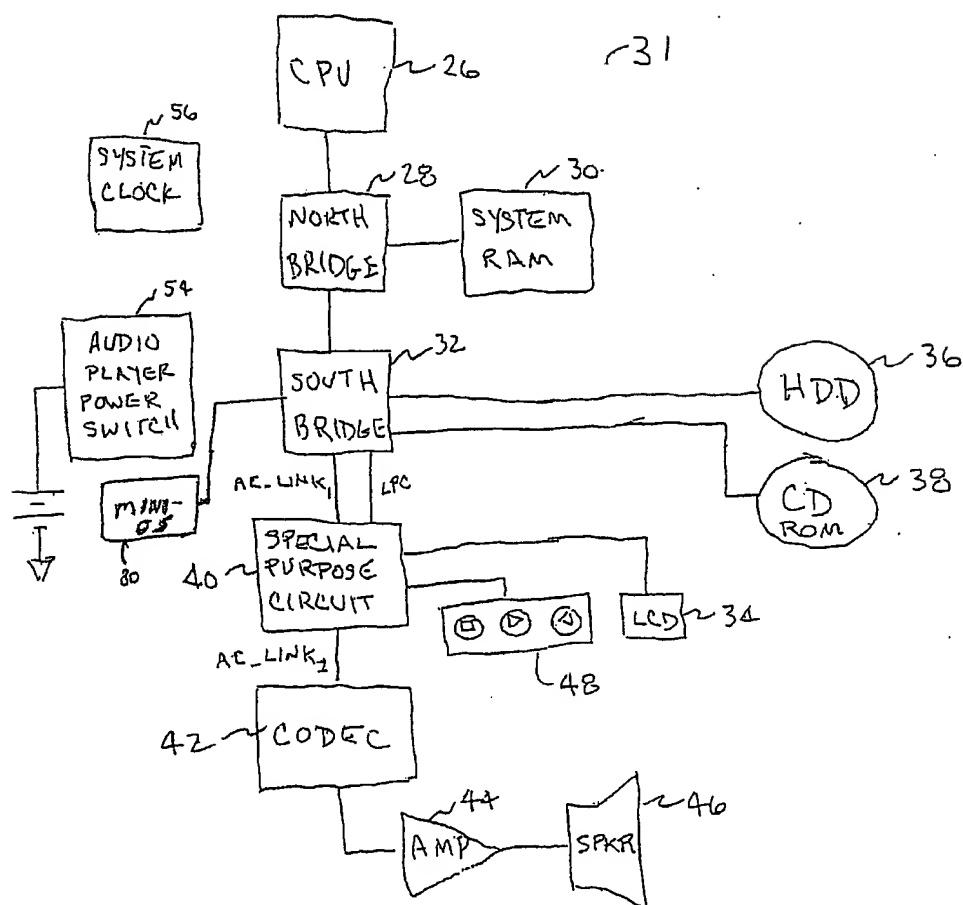 CPU
26
31
56
SYSTEM
CLOCK
28
NORTH
BRIDGE
30
SYSTEM
RAM
54
AUDIO
PLAYER
POWER
SWITCH
32
SOUTH
BRIDGE
36
HDD
38
CD
ROM
MINI-
OS
80
AC_LINK1
LPC
40
SPECIAL
PURPOSE
CIRCUIT
48
LCD
34
AC_LINK2
42
CODEC
44
AMP
46
SPKR